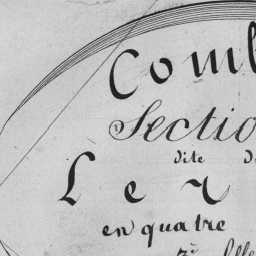 Com
Sectio
dite d
Le
en quatre